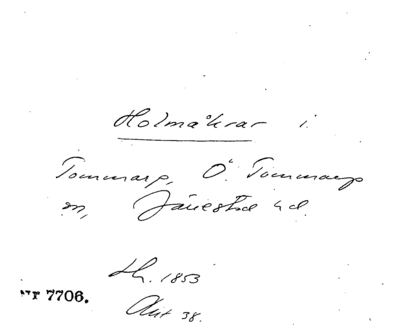 Holmåkrar i
Tommarp, Ö. Tommarp
sn, Järrestad hd.
Lh. 1853
Akt 38.
Nr 7706.